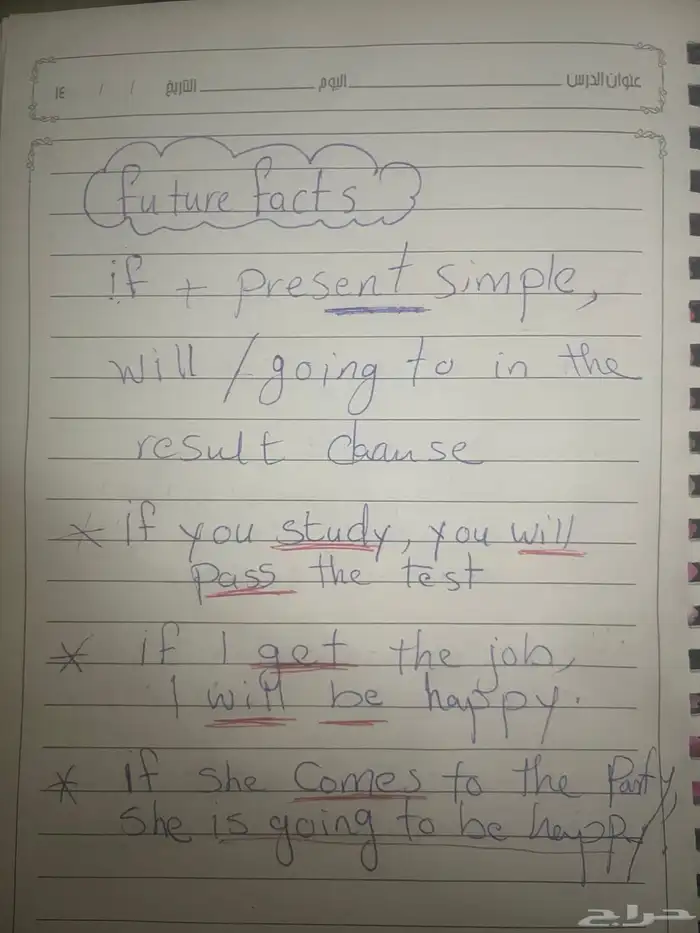 عنوان الدرس اليوم التاريخ / / ١٤
future facts
if + present simple,
will / going to in the
result chause
* if you study, you will
pass the test
* if I get the job,
I will be happy.
* if she comes to the Party,
She is going to be happy
حراج